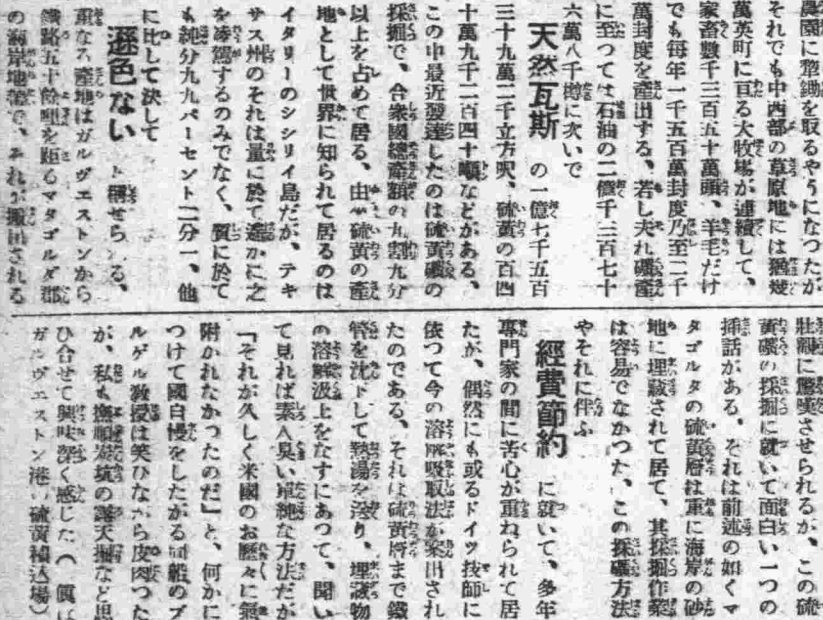 農園に犂鋤を取るやうになつたが
それでも中西部の草原地には猶幾
萬英町に亘る大牧場が連續して、
家畜數千三百五十萬頭、羊毛だけ
でも毎年一千五百萬封度乃至二千
萬封度を產出する、若し夫れ礦產
に至つては石油の二億千三百七十
六萬八千樽に次いで
天然瓦斯 の一億七千五百
三十九萬二千立方呎、硫黄の百四
十萬九千二百四十噸などがある、
この中最近發達したのは硫黄礦の
採掘で、合衆國總產額の九割九分
以上を占めて居る、由來硫黄の產
地として世界に知られて居るのは
イタリーのシシリイ島だが、テキ
サス州のそれは量に於て遙かに之
を凌駕するのみでなく、質に於て
も純分九九パーセント二分一、他
に比して決して
遜色ない と稱せらる、
重なる產地はガルヴエストンから
鐵路五十餘哩を距るマタゴルダ郡
の海岸地帶で、それが搬出される
壯觀に驚嘆させられるが、この硫
黄礦の採掘に就いて面白い一つの
挿話がある、それは前述の如くマ
タゴルタの硫黄層は重に海岸の砂
地に埋藏されて居て、其採掘作業
は容易でなかつた、この採礦方法
やそれに伴ふ
經費節約 に就いて、多年
專門家の間に苦心が重ねられて居
たが、偶然にも或るドイツ技師に
依つて今の溶解吸取法が案出され
たのである、それは硫黄層まで鐵
管を沈下して熱湯を送り、埋藏物
の溶解汲上をなすにあつて、聞い
て見れば素人臭い單純な方法だが
「それが久しく米國のお歷々に氣
附かれなかつたのだ」と、何かに
つけて國自慢をしたがる同船のブ
ルゲル敎授は笑ひながら皮肉つた
が、私も撫順炭坑の露天掘など思
ひ合せて興味深く感じた（ 寫眞は
ガルヴエストン港の硫黄積込場）